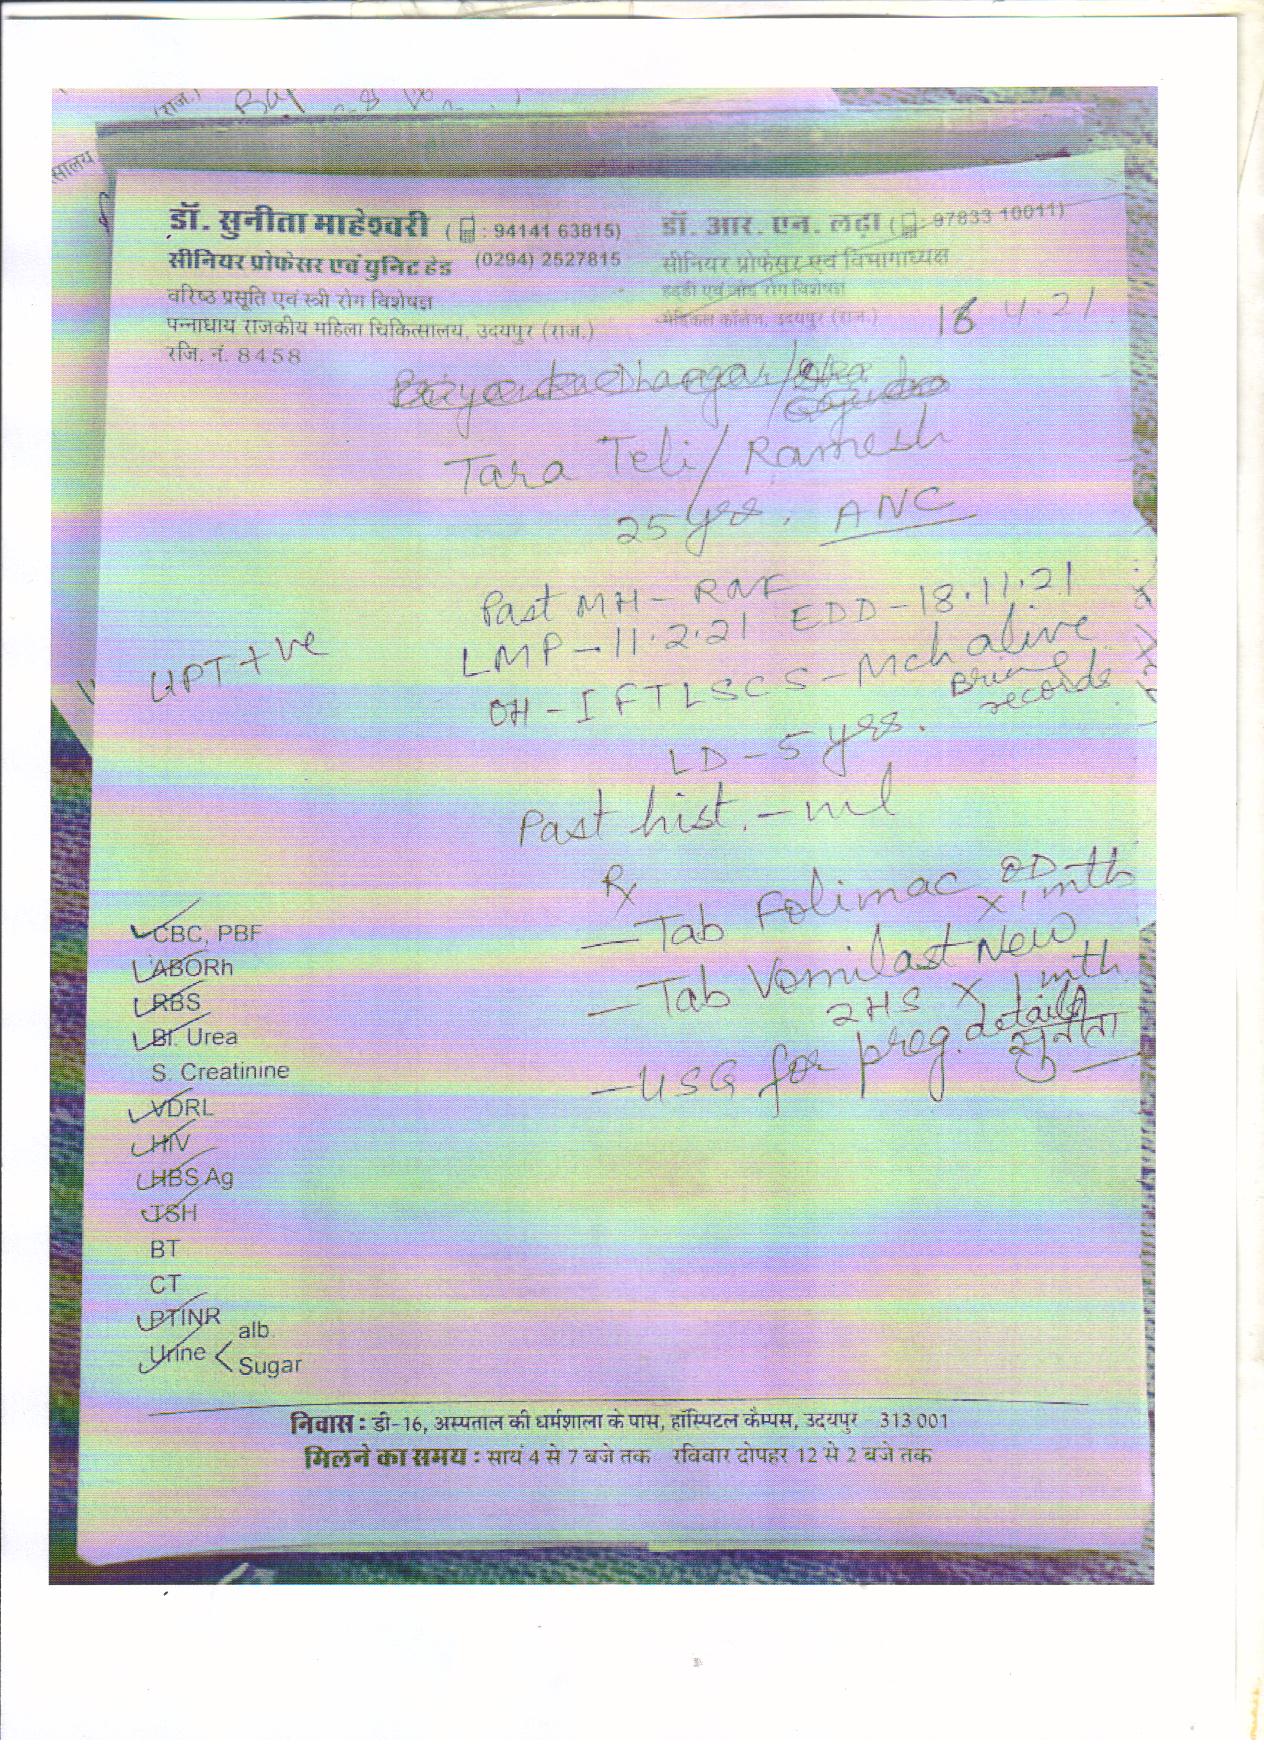 डॉ. सुनीता माहेश्वरी ( : 94141 63815)
सीनियर प्रोफेसर एवं युनिट हेड (0294) 2527815
वरिष्ठ प्रसूति एवं स्त्री रोग विशेषज्ञ
पन्नाधाय राजकीय महिला चिकित्सालय, उदयपुर (राज.)
रजि. नं. 8458
डॉ. आर. एन. लढ़ा ( : 97833 10011)
सीनियर प्रोफेसर एवं विभागाध्यक्ष
हड्डी एवं जोड रोग विशेषज्ञ
मेडिकल कॉलेज, उदयपुर (राज.)
18 4.21
Tara Teli/Ramesh
25 yrs. ANC
Past MH - RNF
LMP - 11.2.21 EDD - 18.11.21
UPT +ve
OH - I FTLSCS - Mch alive
Bring records
LD - 5 yrs.
Past hist. - nil
Rx
- Tab Folimac OD x 1 mth
- Tab Vomilast New
2HS x 1 mth
- USG for preg. details
सुनीता
CBC, PBF
ABORh
RBS
Bl. Urea
S. Creatinine
VDRL
HIV
HBS Ag
TSH
BT
CT
PTINR
Urine < alb.
Sugar
निवास : डी-16, अस्पताल की धर्मशाला के पास, हॉस्पिटल कैम्पस, उदयपुर - 313 001
मिलने का समय : सायं 4 से 7 बजे तक रविवार दोपहर 12 से 2 बजे तक